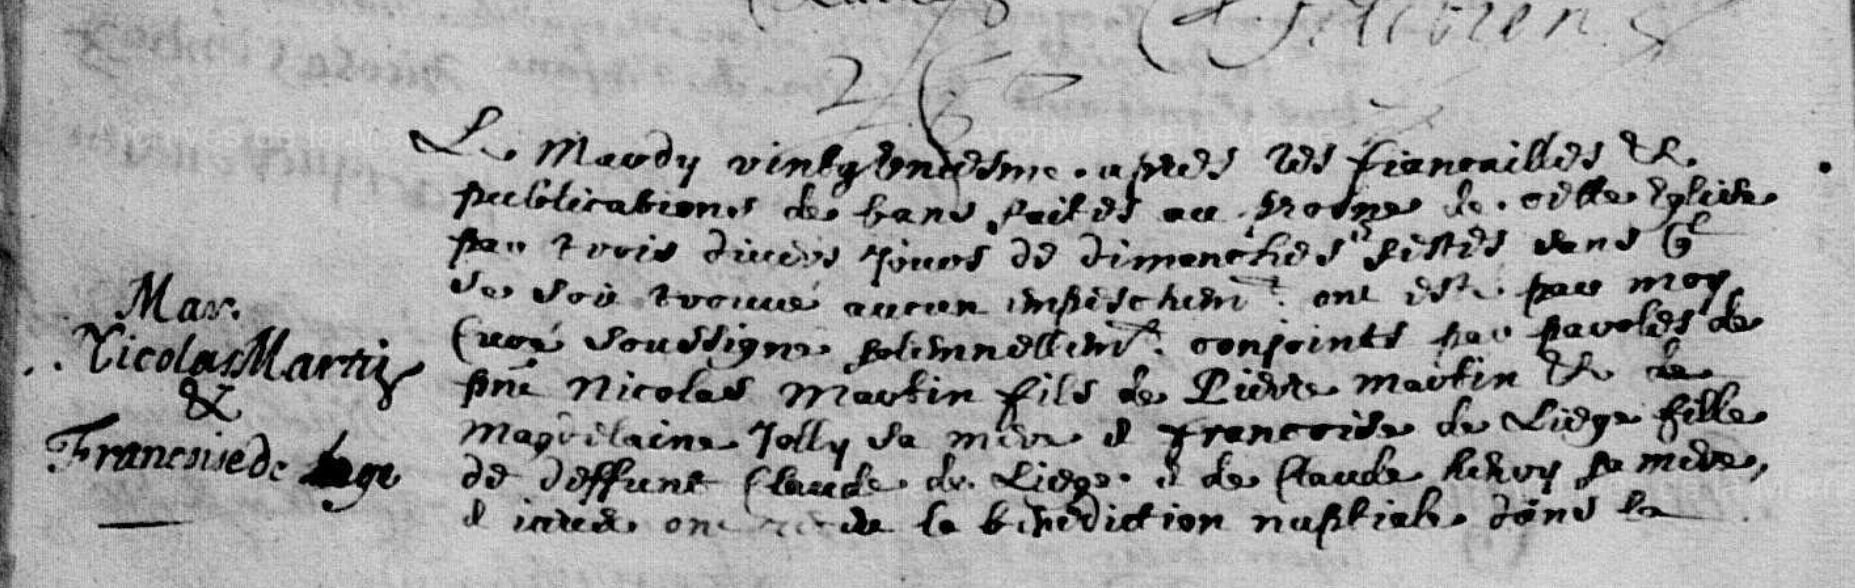 Mar.
Nicolas Martin
&
Francoise de Liege
Le Mardy vingt onziesme apres les fiancailles &
publications de bans faites au prosne de cette Eglise
par trois divers jours de dimanches festes sans q̃
se soit trouvé aucun empeschem.t ont esté par moy
Curé soussigné solemnellem.t conjoints par paroles de
pnt Nicolas Martin fils de Pierre Martin & de
Magdelaine Jolly sa mere et Francoise de Liege fille
de deffunt Claude de Liege et de Claude henry sa mere,
et iceux ont de la benediction nuptiale dans la